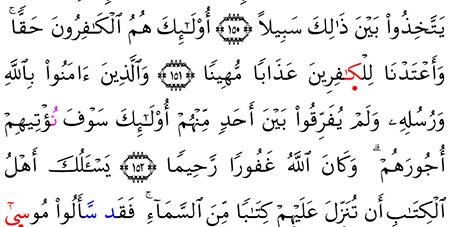 يَتَّخِذُوا۟ بَيْنَ ذَٰلِكَ سَبِيلاً ﴿١٥٠﴾ أُو۟لَـٰٓئِكَ هُمُ ٱلْكَـٰفِرُونَ حَقًّا ۚ
وَأَعْتَدْنَا لِلْكَـٰفِرِينَ عَذَابًا مُّهِينًا ﴿١٥١﴾ وَٱلَّذِينَ ءَامَنُوا۟ بِٱللَّهِ
وَرُسُلِهِۦ وَلَمْ يُفَرِّقُوا۟ بَيْنَ أَحَدٍ مِّنْهُمْ أُو۟لَـٰٓئِكَ سَوْفَ نُؤْتِيهِمْ
أُجُورَهُمْ ۗ وَكَانَ ٱللَّهُ غَفُورًا رَّحِيمًا ﴿١٥٢﴾ يَسْـَٔلُكَ أَهْلُ
ٱلْكِتَـٰبِ أَن تُنَزِّلَ عَلَيْهِمْ كِتَـٰبًا مِّنَ ٱلسَّمَآءِ ۚ فَقَد سَّأَلُوا۟ مُوسِىٰٓ